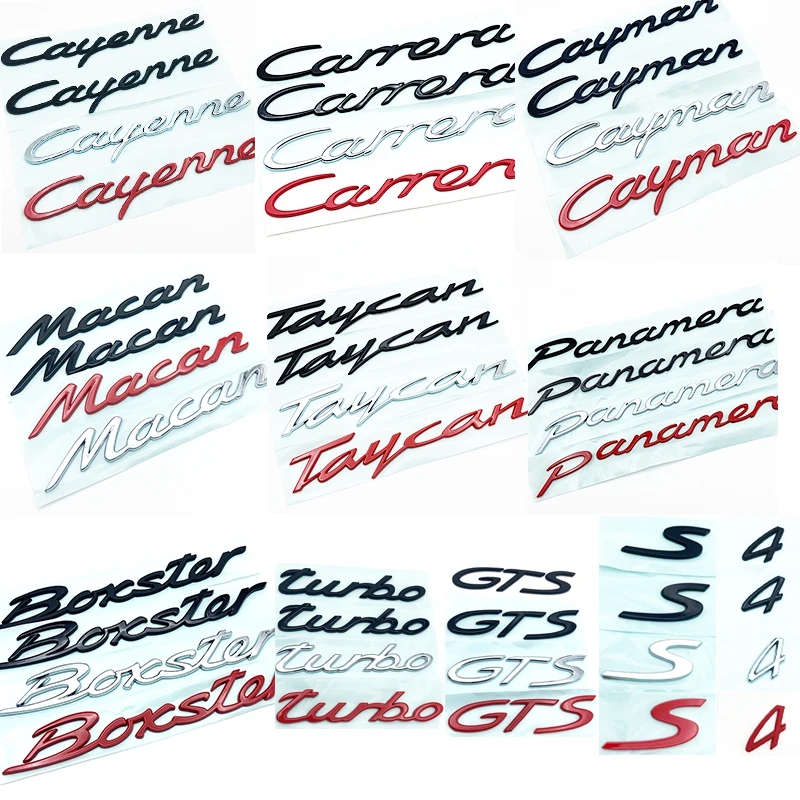 Cayenne
Cayenne
Cayenne
Cayenne
Carrera
Carrera
Carrera
Carrer
Cayman
Cayman
Cayman
Cayman
Macan
Macan
Macan
Macan
Taycan
Taycan
Taycan
Taycan
Panamera
Panamera
Panamera
Panamera
Boxster
Boxster
Boxster
Boxster
turbo
turbo
turbo
turbo
GTS
GTS
GTS
GTS
S
S
S
S
4
4
4
4